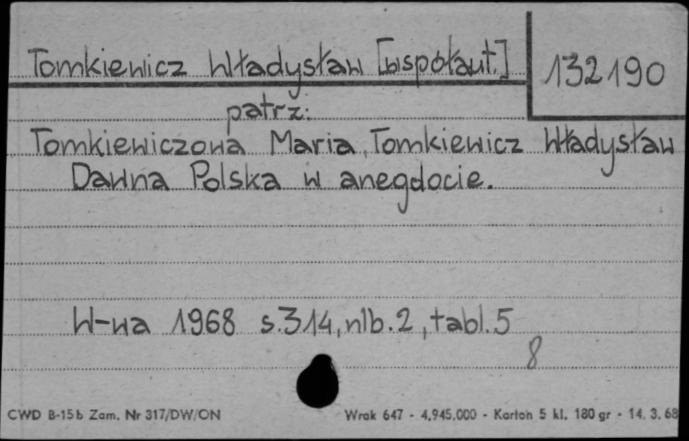 Tomkiewicz Władysław [współaut.] 132190
patrz:
Tomkiewiczowa Maria, Tomkiewicz Władysław
Dawna Polska w anegdocie.
W-wa 1968 s.314, nlb.2, tabl.5
8
CWD B-15b Zam. Nr 317/DW/ON Wrak 647 - 4,945.000 - Karton 5 kl. 180 gr - 14. 3. 68